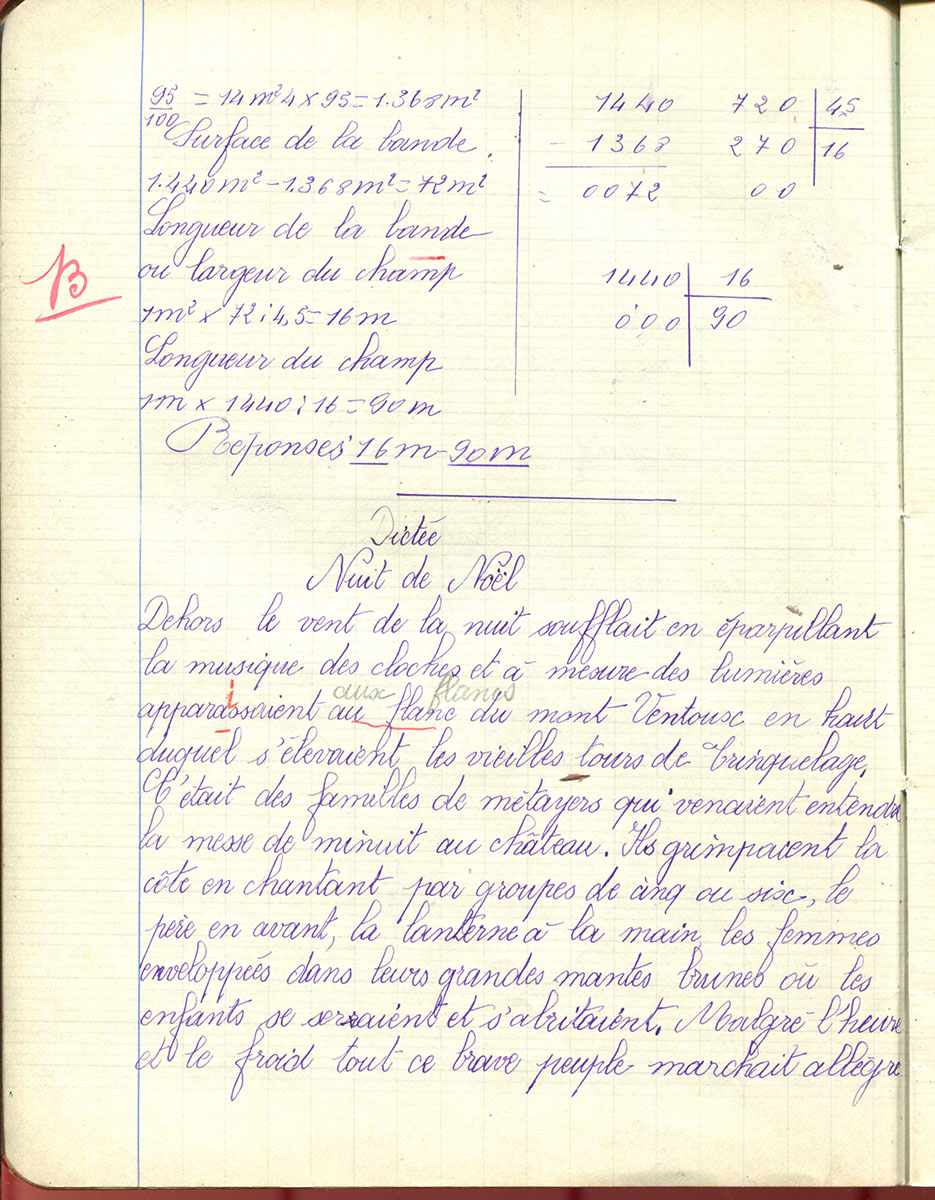 95/100 = 14m²4 x 95 = 1.368m²
Surface de la bande.
1.440m² - 1.368m² = 72m²
Longueur de la bande
ou largeur du champ
1m² x 72 : 4,5 = 16m
Longueur du champ
1m x 1440 : 16 = 90m
Réponses 16m - 90m
B
1440
- 1368
= 0072
720 | 4,5
270 | 16
00
1440 | 16
000 | 90
Dictée
Nuit de Noël
Dehors le vent de la nuit soufflait en éparpillant
la musique des cloches et à mesure des lumières
i aux flancs
apparassaient au flanc du mont Ventoux en haut
duquel s'élevaient les vieilles tours de Trinquelage.
C'était des familles de métayers qui venaient entendre
la messe de minuit au château. Ils grimpaient la
côte en chantant par groupes de cinq ou six, le
père en avant, la lanterne à la main, les femmes
enveloppées dans leurs grandes mantes brunes où les
enfants se serraient et s'abritaient. Malgré l'heure
et le froid tout ce brave peuple marchait allègre